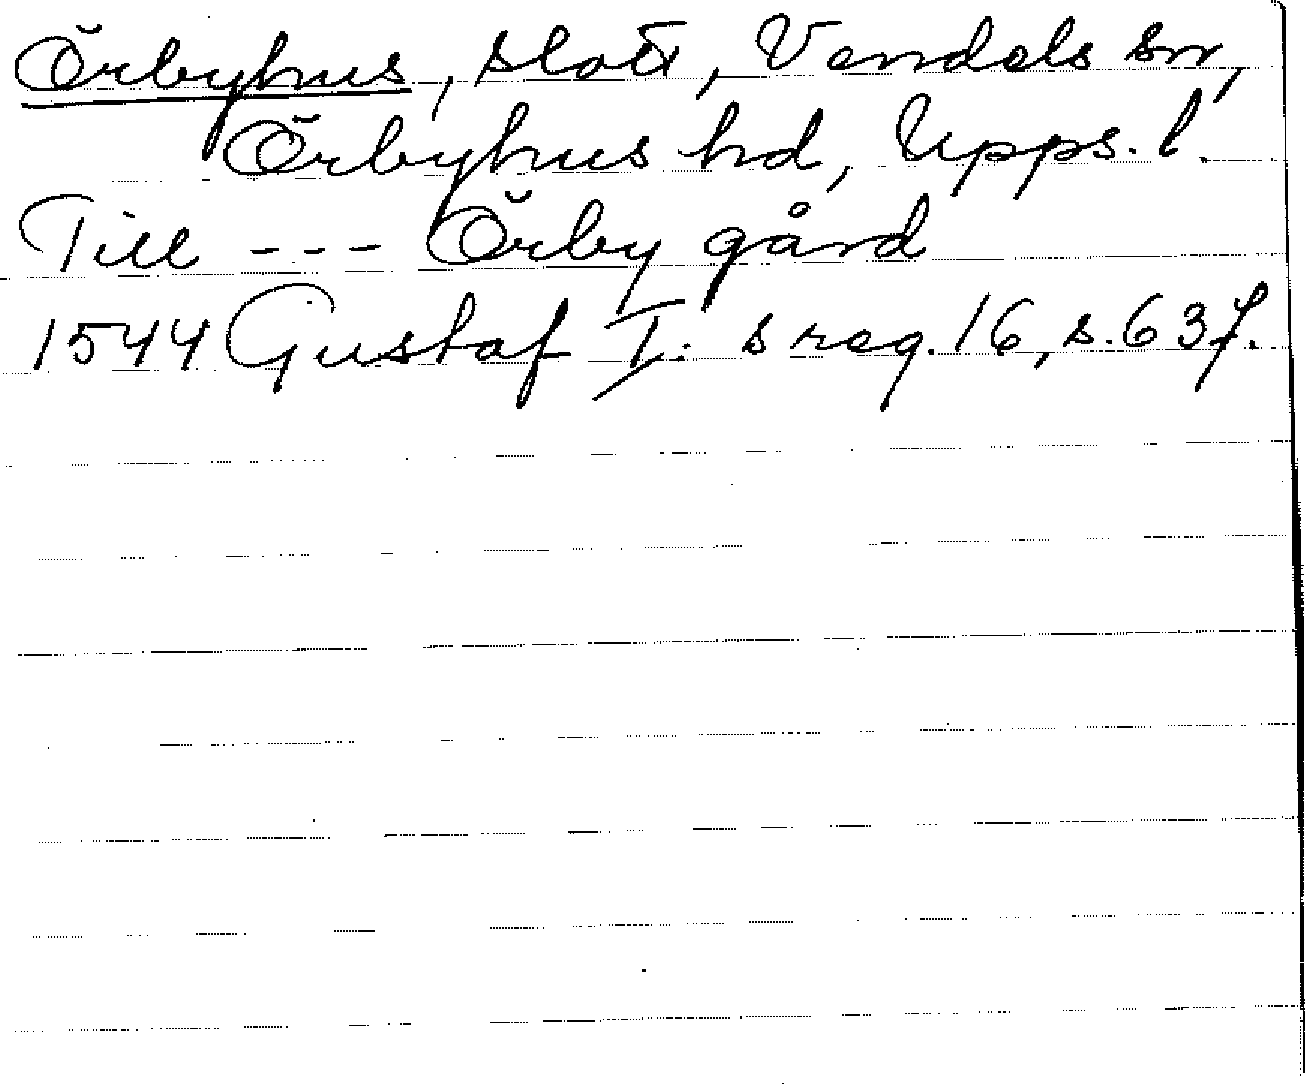 Örbyhus, slott, Vendels sn,
Örbyhus hd, Upps. l.
Till --- Örby gård
1544 Gustaf I: s reg. 16, s. 63 f.